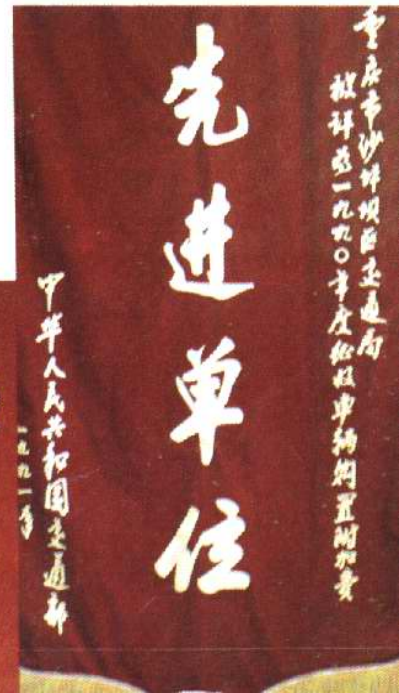 重庆市沙坪坝区交通局
被评为一九九〇年度征收车辆购置附加费
先进单位
中华人民共和国交通部
一九九一年